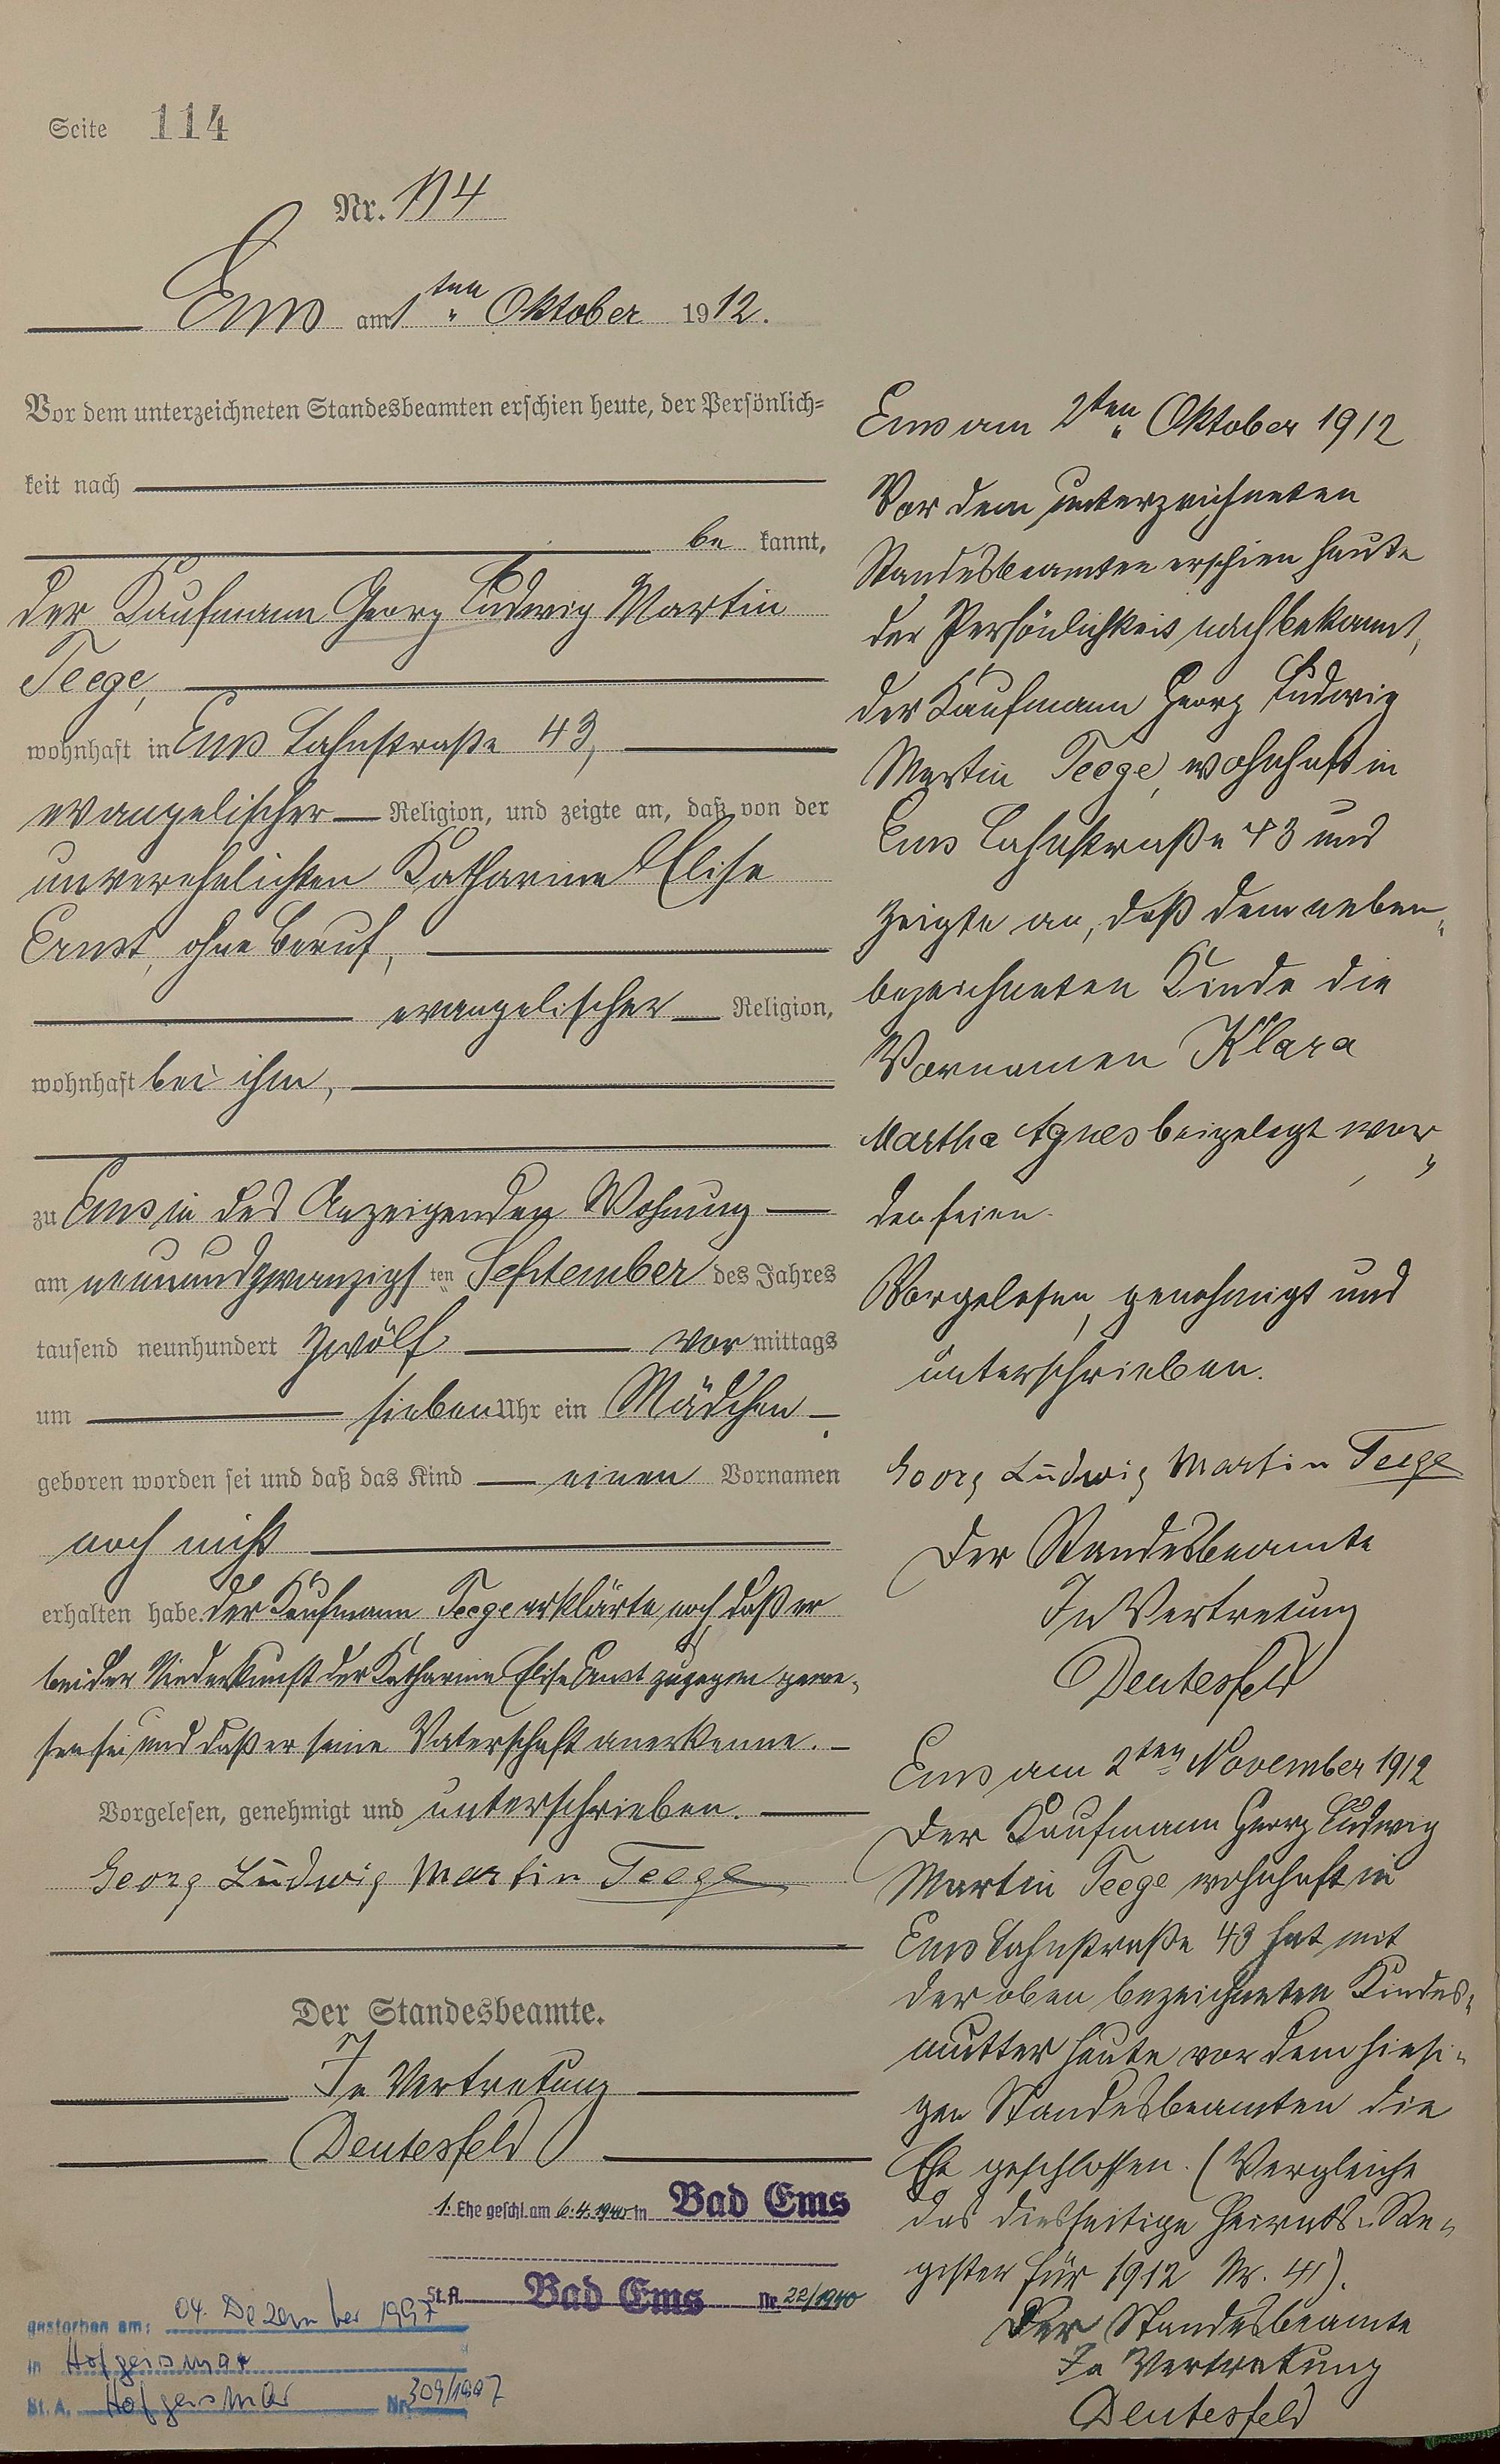 Seite 114
Nr. 114
Ems am 1ten Oktober 1912.
Vor dem unterzeichneten Standesbeamten erschien heute, der Persönlich=
keit nach
be kannt,
der Kaufmann Georg Ludwig Martin
Teege,
wohnhaft in Ems Lahnstraße 43,
evangelischer Religion, und zeigte an, daß von der
unverehelichten Katharine Elise
Ernst, ohne Beruf,
evangelischer Religion,
wohnhaft bei ihm,
zu Ems in des Anzeigenden Wohnung
am neunundzwanzigsten September des Jahres
tausend neunhundert zwölf vor mittags
um sieben Uhr ein Mädchen
geboren worden sei und daß das Kind einen Vornamen
noch nicht
erhalten habe. Der Kaufmann Teege erklärte noch, daß er
bei der Niederkunft der Katharine Elise Ernst zugegen gewe-
sen sei und daß er seine Vaterschaft anerkenne.
Vorgelesen, genehmigt und unterschrieben.
Georg Ludwig Martin Teege
Der Standesbeamte.
In Vertretung
Deutesfeld
1. Ehe geschl. am 6.4.1940 in Bad Ems
St.A. Bad Ems Nr. 22/1940
gestorben am: 04. Dezember 1997
in Hofgeismar
St. A. Hofgeismar Nr. 309/1997
Ems am 2ten Oktober 1912
Vor dem unterzeichneten
Standesbeamten erschien heute
der Persönlichkeit nach bekannt,
der Kaufmann Georg Ludwig
Martin Teege, wohnhaft in
Ems Lahnstraße 43 und
zeigte an, daß dem neben-
bezeichneten Kinde die
Vornamen Klara
Martha Agnes beigelegt wor-
den seien.
Vorgelesen, genehmigt und
unterschrieben.
Georg Ludwig Martin Teege
Der Standesbeamte
In Vertretung
Deutesfeld
Ems am 2ten November 1912
Der Kaufmann Georg Ludwig
Martin Teege wohnhaft in
Ems Lahnstraße 43 hat mit
der oben bezeichneten Kindes-
mutter heute vor dem hiesi-
gen Standesbeamten die
Ehe geschlossen. (Vergleiche
das diesseitige Heirats-Re-
gister für 1912 Nr. 41).
Der Standesbeamte
In Vertretung
Deutesfeld